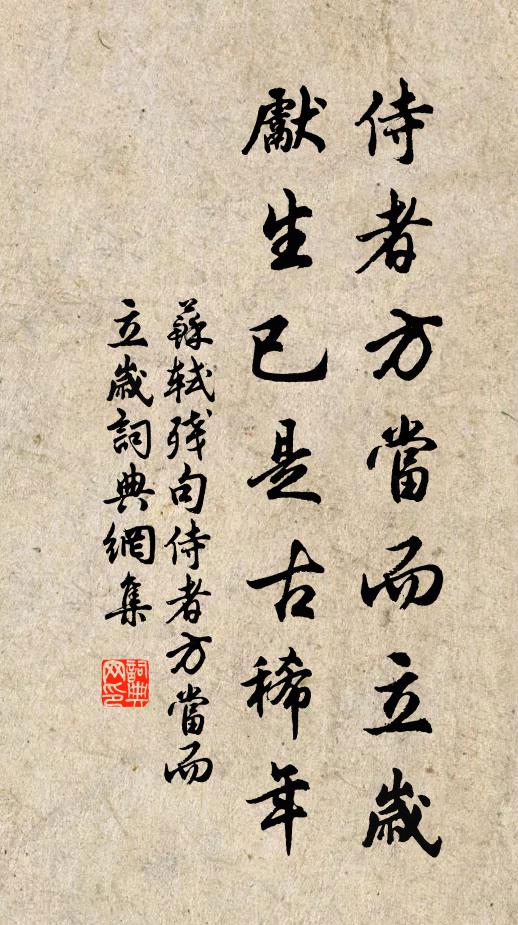 侍者方當而立歲
獻生已是古稀年
蘇軾殘句侍者方當而
立歲詞典網集
詞典
网印